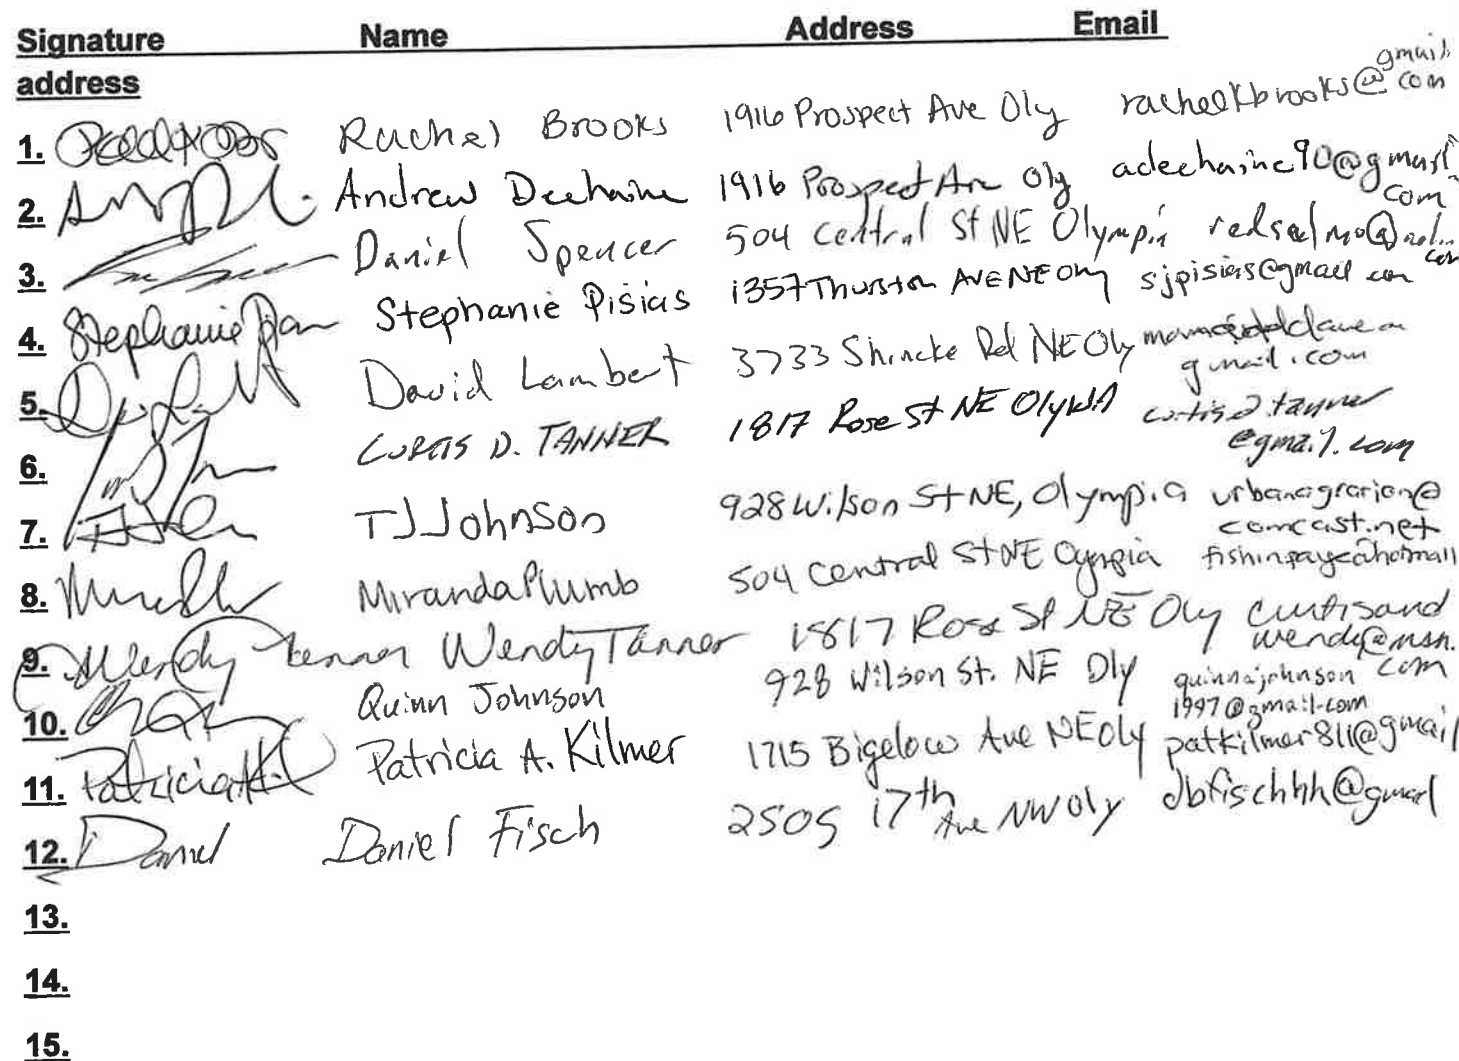 Signature Name Address Email
address
1. Rachel Brooks 1916 Prospect Ave Oly rachelkbrooks@gmail.com
2. Andrew Dechaine 1916 Prospect Ave Oly adechaine90@gmail.com
3. Daniel Spencer 504 Central St NE Olympia
4. Stephanie Pisias 1357 Thurston AVE NE Oly sjpisias@gmail com
5. David Lambert 3733 Shincke Rd NE Oly gmail.com
6. CURTIS D. TANNER 1817 Rose St NE Oly WA curtis d tanner
@gmail.com
7. TJ Johnson 928 Wilson St NE, Olympia urbanagrarian@
comcast.net
8. Miranda Plumb 504 Central St NE Oympia fishinpage@hotmail
9. Wendy Tanner Wendy Tanner 1817 Rose St NE Oly curtisand
wendy@msn.com
10. Quinn Johnson 928 Wilson St. NE Oly quinnajohnson
1997@gmail.com
11. Patricia Patricia A. Kilmer 1715 Bigelow Ave NE Oly patkilmer811@gmail
12. Daniel Daniel Fisch 2505 17th Ave NW Oly dbfischhh@gmail
13.
14.
15.